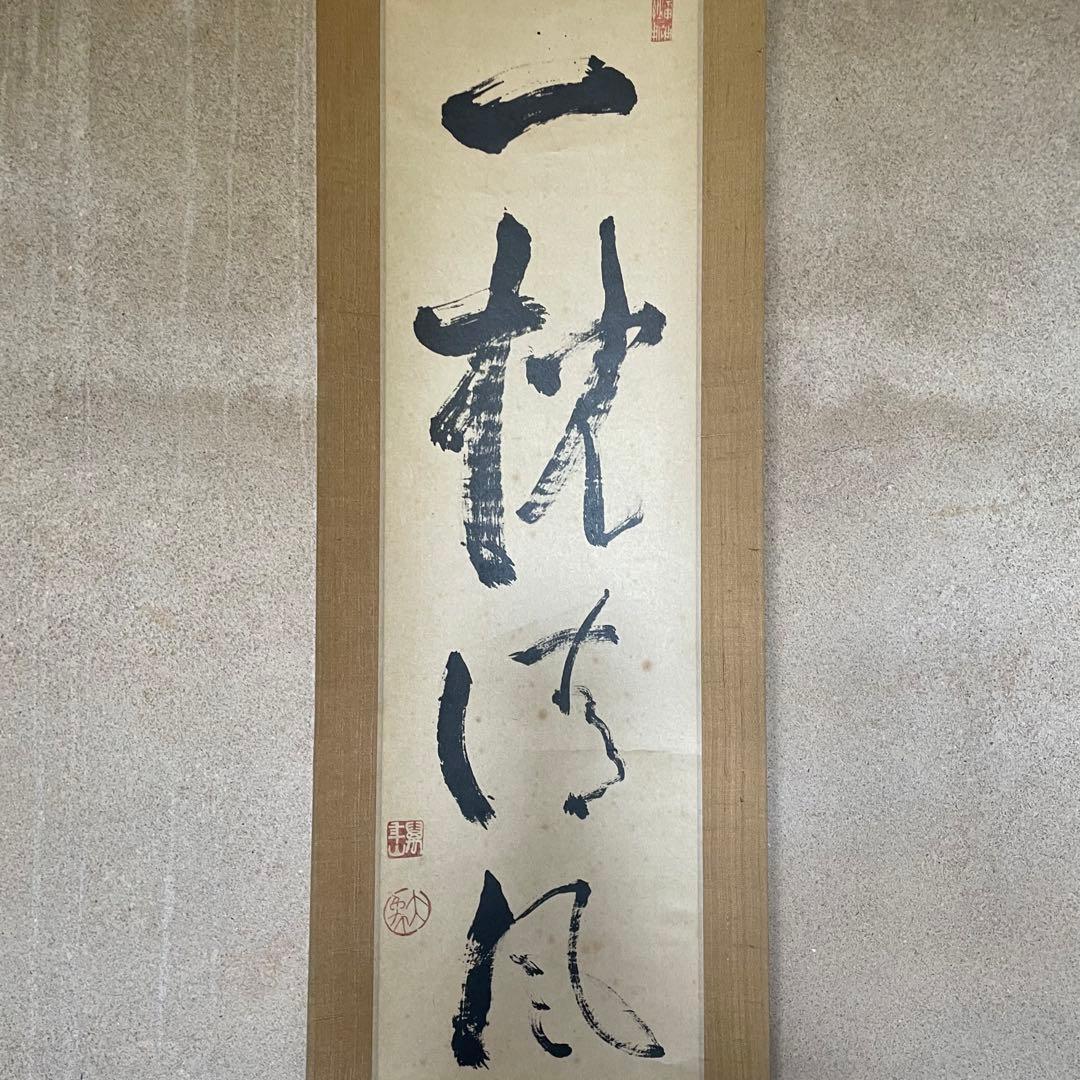 一枕清風